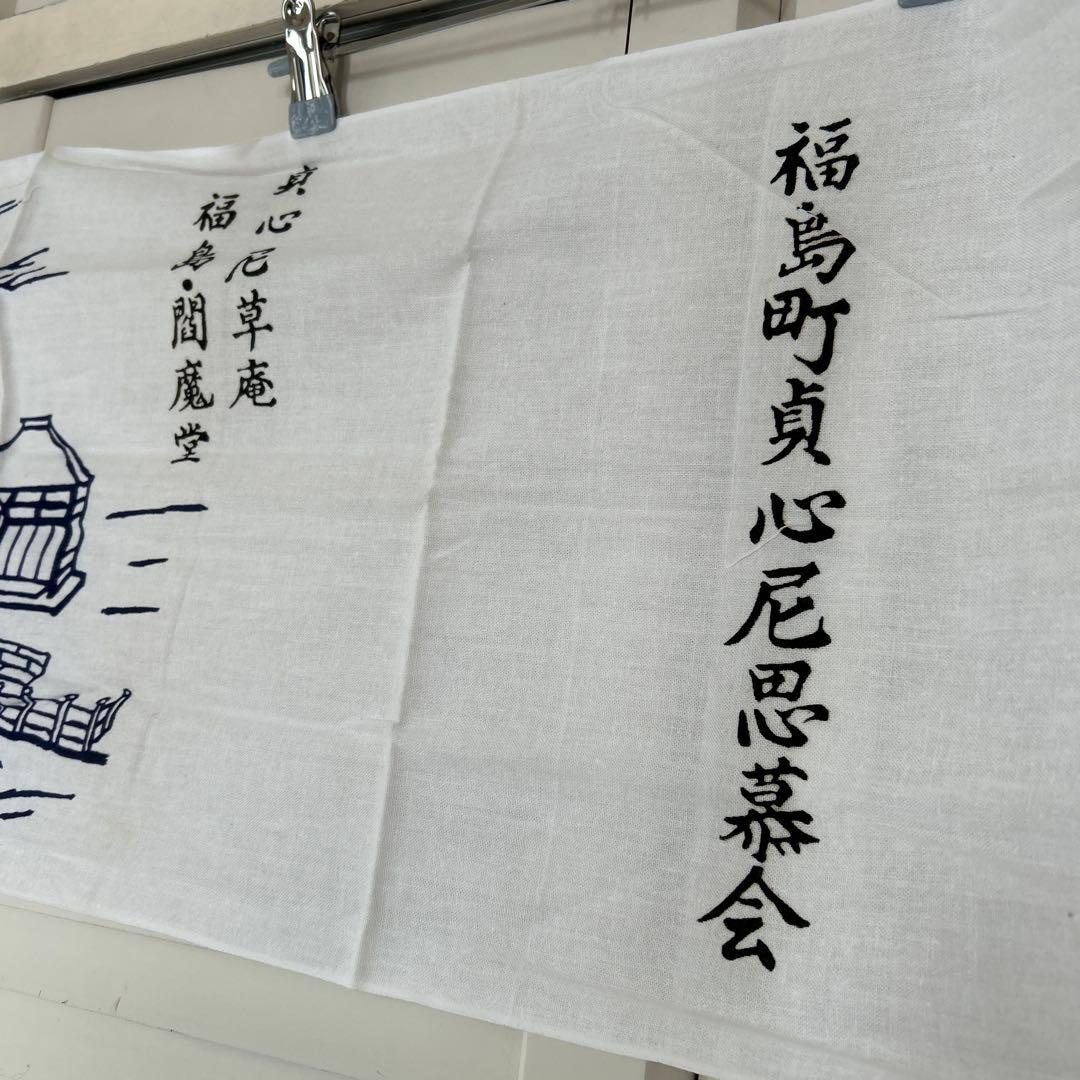 福島町貞心尼思慕会
貞心尼草庵
福島・閻魔堂